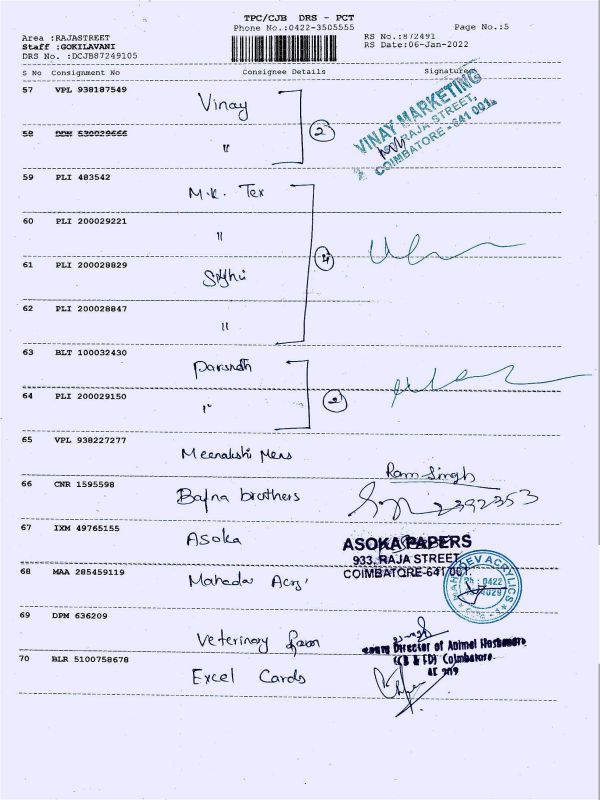 TPC/CJB DRS - PCT
Phone No.:0422-3505555
Page No.:5
Area :RAJASTREET
Staff :GOKILAVANI
DRS No. :DCJB87249105
RS No.:872491
RS Date:06-Jan-2022
S No Consignment No Consignee Details Signature
57 VPL 938187549 Vinay
VINAY MARKETING
RAJA STREET,
COIMBATORE - 641 001.
58 DDM 530029666 "
2
59 PLI 483542 M.K. Tex
60 PLI 200029221 "
4
61 PLI 200028829
62 PLI 200028847 "
63 BLT 100032430
64 PLI 200029150 "
2
65 VPL 938227277 Meenakshi Mens
Ram Singh
66 CNR 1595598 Bafna brothers
2392353
67 IXM 49765155 Asoka
ASOKA PAPERS
933, RAJA STREET
COIMBATORE-641 001.
68 MAA 285459119 Mahadev
MAHADEV ACRYLICS
Ph : 0422
69 DPM 636209 Veterinary
Director of Animal Husbandry
Coimbatore
70 BLR 5100758678 Excel Cards